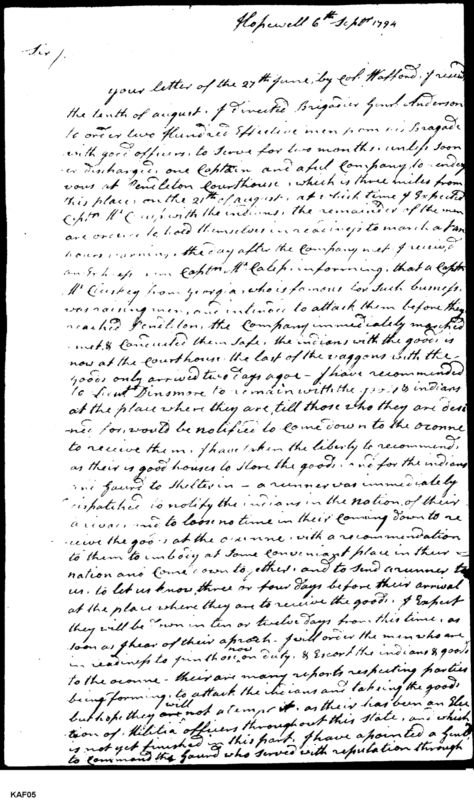 Hopewell 6th Septr 1794
Sir /.
your letter of the 27th June, by Col. Hafford. I receivd
the tenth of august. I Directed Brigadier Genl. Anderson
to order two Hundred Effective men from his Bragade
with good officers, to Serve for two months, unless soon
er discharged, one Captain and a full Company, to rendez
vous at Penelton Courthouse, which is three miles from
this place, on the 21th of august, at which time I Expected
Captn. Mc with the indians, the remainder of the men
are ordered to hold themselves in readiness to march at an
hours warning, the day after the Company met I received
an Express from Captn. Mc Calep, informing, that a Captn.
Mc from georgia, who is famous for Such buiness.
was raising men, and intended to attack them before they
reached Penelton, the Company immediately marched
met & Conducted them Safe, the indians with the goods is
now at the Courthouse, the last of the waggons with the
goods only arrived two days agoe - I have recommended
to Lieut. Dinsmore to remain with the goods & indians
at the place where they are, till those who they are desi
ned for, would be notified to Come down to the oconne
to receive them, I have taken the liberty to recommend,
as their is good houses to Store the goods, and for the indians
and Gaurd to Shelter in - a runner was immediately
dispatched to notify the indians in the nation, of their
arival and to loose no time in their Coming down to re
ceive the goods at the oconne, with a recommendation
to them to imbody at Some Conveniant place in their
nation and Come down together, and to Send a runner to
us, to let us know three or four days before their arrival
at the place where they are to receive the goods, I Expect
they will be down in ten or twelve days from this time, as
soon as I hear of their aproch, I will order the men who are
in readiness to join those now on duty, & Escort the indians & goods
to the oconne - their are many reports respecting parties
being forming, to attack the indians and takeing the goods
but hope they will not attempt it, as their has been an Elec
tion of Militia officers throughout this State, and which
is not yet finished in this part, I have apointed a Genl.
to command the Gaurd who Served with reputation through
KAF05